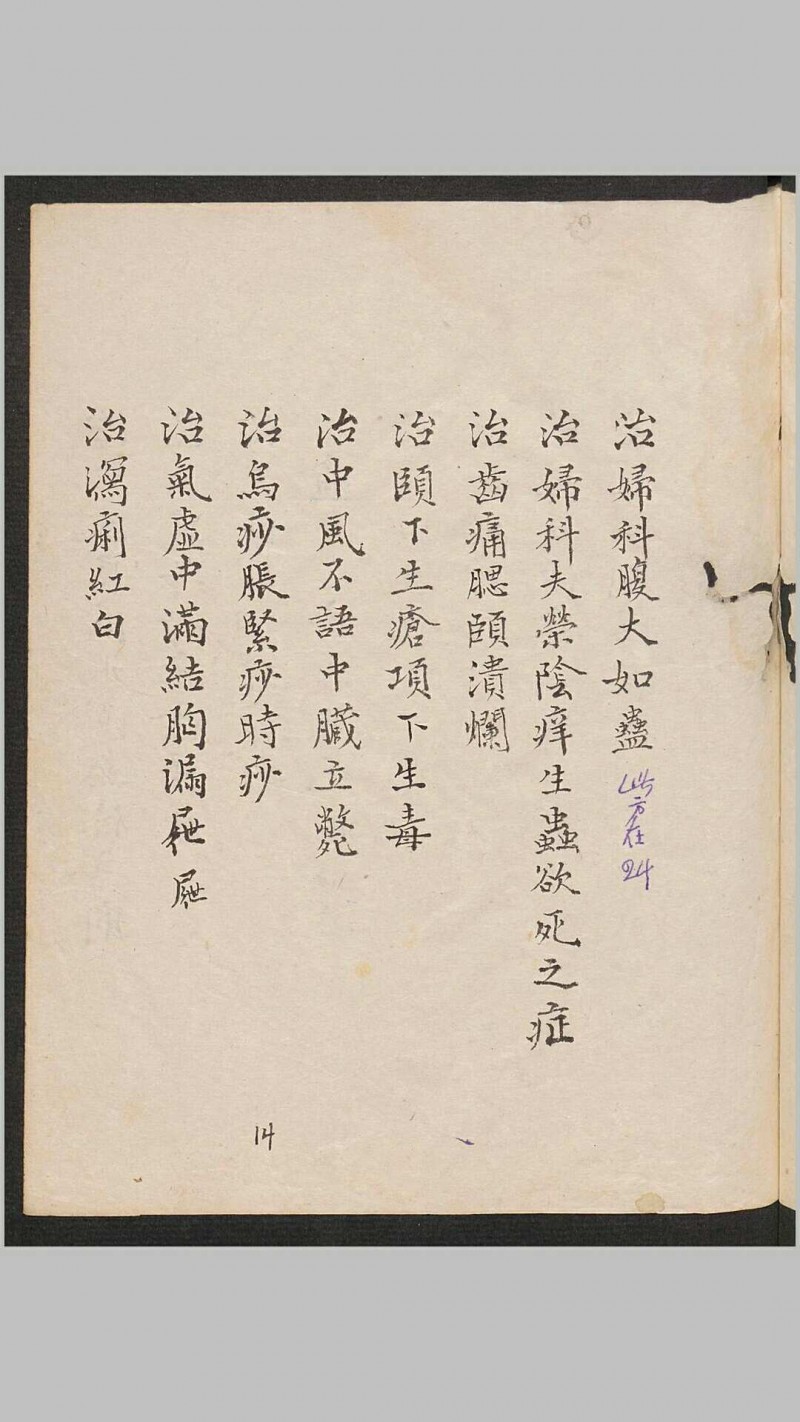 治婦科腹大如蠱 此方在24
治婦科夫榮陰痒生蟲欲死之症
治齒痛腮頤潰爛
治頤下生瘡項下生毒
治中風不語中臟立斃
治烏痧脹緊痧時痧
治氣虛中滿結胸漏
治瀉痢紅白
14